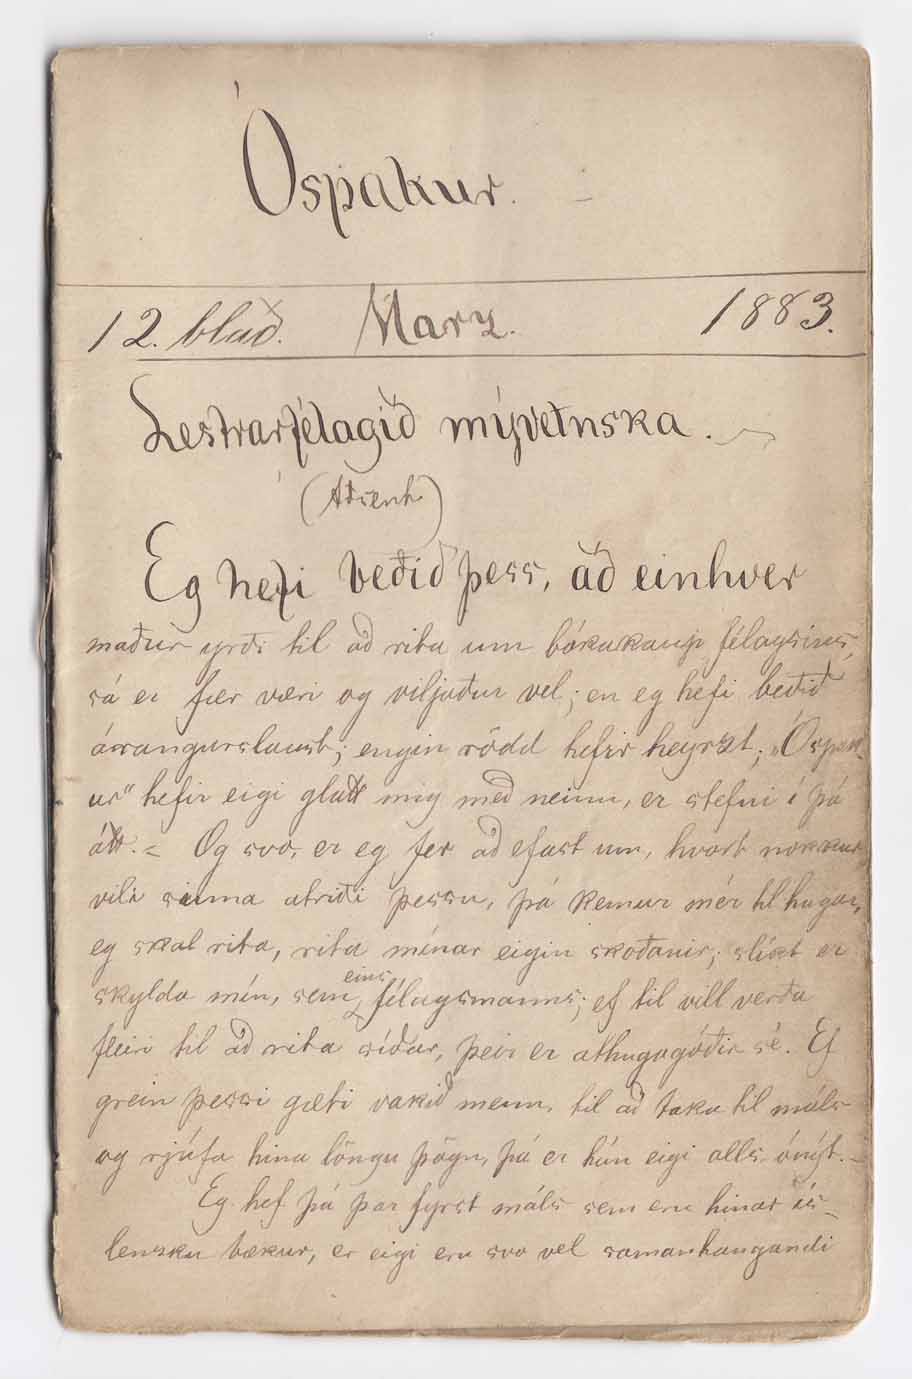 Óspakur.
12. blað. Marz. 1883.
Lestrarfélagið mývetnska.
(Aðsent)
Eg hefi beðið þess, að einhver
maður yrði til að rita um bókakaup félagsins,
sá er fær væri og viljaður vel; en eg hefi beðið
árangurslaust; engin rödd hefir heyrzt; „Óspak-
ur“ hefir eigi glatt mig með neinu, er stefni í þá
átt. - Og svo, er eg fer að efast um, hvort nokkur
vili sinna atriði þessu, þá kemur mér til hugar,
eg skal rita, rita mínar eigin skoðanir; slíkt er
skylda mín, sem eins félagsmanns; ef til vill verða
fleiri til að rita síðar, þeir er athugagóðir sé. Ef
grein þessi gæti vakið menn, til að taka til máls
og rjúfa hina löngu þögn, þá er hún eigi alls ónýt. -
Eg hef þá þar fyrst máls sem eru hinar ís-
lensku bækur, er eigi eru svo vel samanhangandi